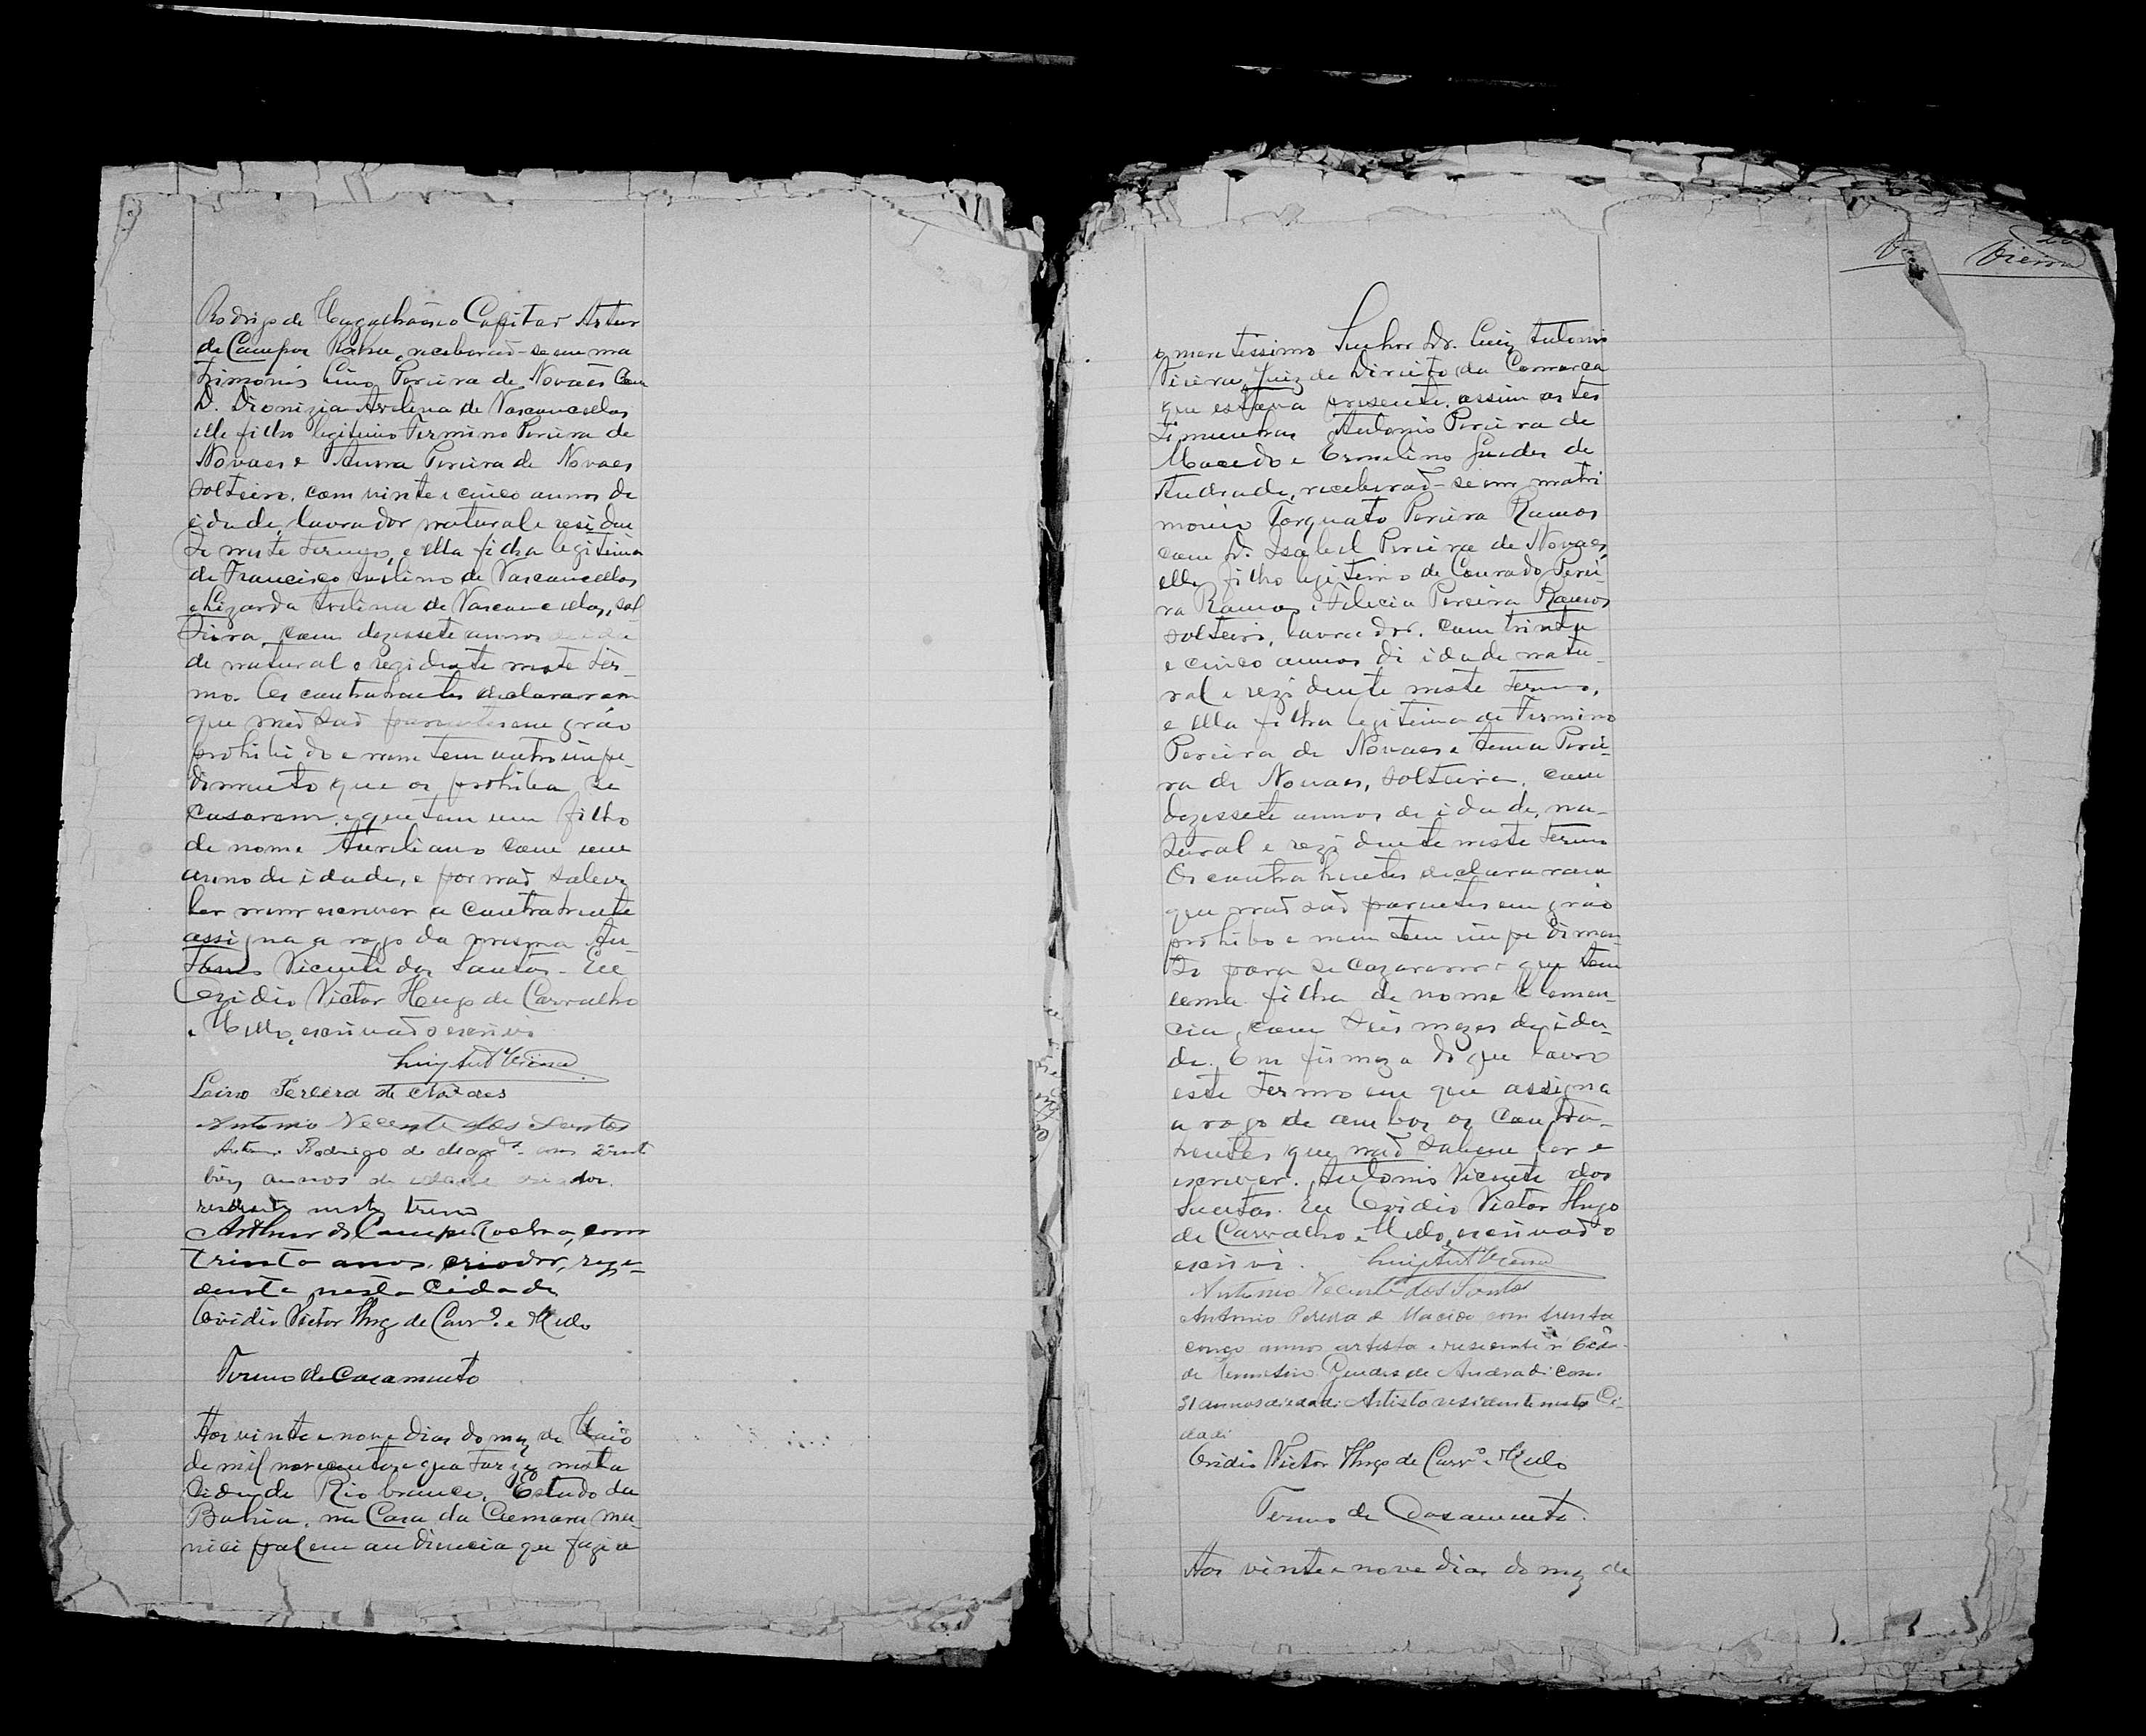 Rodrigo de Magalhães e Capitão Artur
de Campos Rocha, receberaõ-se em ma
trimonio Lino Pereira de Novaes com
D. Dionizia Avelina de Vasconcellos
elle filho legitimo Firmino Pereira de
Novaes e Anna Pereira de Novaes
solteiro, com vinte e cinco annos de
idade, lavrador natural e residen
te neste termo, e ella filha legitima
de Francisco Avelino de Vasconcellos
e Lizarda Avelina de Vasconcellos, sol
teira, com dezessete annos de ida
de natural e rezidente neste ter-
mo. Os contrahentes declararam
que naõ saõ parentes em gráo
prohibido e nem tem outro impe-
dimento que os prohiba de
casarem, e que tem um filho
de nome Aureliano com um
anno de idade, e por naõ saber
ler nem escrever a contrahente
assigna a rogo da mesma An-
tonio Vicente dos Santos. Eu
Ovidio Victor Hugo de Carvalho
e Mello, escrivaõ o escrivi
Luiz Antº Vieira
Leino Pereira de Novaes
Antonio Vecente dos Santos
Rodrigo de Mag.es com
annos de idade criador
residente neste
Arthur de Campos Rocha, com
trinta anos, criador, rezi-
dente nesta Cidade
Ovidio Victor Hug de Carvº. e Mello
Termo de Casamento
Aos vinte e nove dias do mez de Maio
de mil novecentos e quatorze nesta
Cidade de Rio branco, Estado da
Bahia, na Casa da Camara mu-
nicipal em audiencia que fazia
Vieira
o meretissimo Senhor Dr. Luiz Antonio
Vieira, Juiz de Direito da Comarca
que estava presente, assim as tes
timunhas Antonio Pereira de
Macedo e Ermelino Guedes de
Andrade, receberaõ-se em matri
monio Torquato Pereira Ramos
com D. Isabel Pereira de Novaes,
elle filho legitimo de Conrado Perei-
ra Ramos e Felicia Pereira Ramos
solteiro, lavrador, com trinta
e cinco annos di idade natu-
ral e rezidente neste termo,
e ella filha legitima de Firmino
Pereira de Novaes e Anna Perei-
ra de Novaes, solteira, com
dezessete annos de idade, na-
tural e rezidente neste termo
Os contrahentes declararam
que naõ saõ parentes em gráo
prohibo e nem tem impedimen-
to para se cazarem e que tem
uma filha de nome Clemen-
cia, com seis mezes de ida-
de. Em firmeza do que lavro
este termo em que assigna
a rogo de ambos os contra-
hentes que naõ sabem ler e
escrever. Antonio Vicente dos
Santos. Eu Ovidio Victor Hugo
de Carvalho e Mello, escrivaõ o
escrivi. Luiz Antº Vieira
Antonio Vecente dos Santos
Antonio Pereira de Macedo com trinta
annos artista residente
Guedes de Andradi com
31 annos de idade Artista residente nesta Ci-
dadi
Ovidio Victor Hugo de Carvº e Mello
Termo de Casamento.
Aos vinte e nove dias do mez de